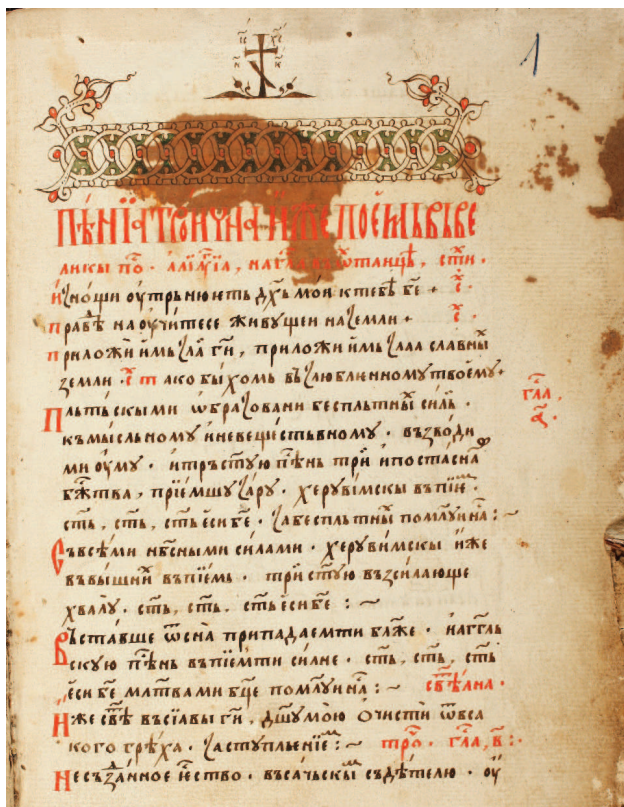 1
пѣнїа трои҆чна и҆же пое́мъ въ ве
ликы по҇ · алїлꙋ́їа, на гл҃ѿ станцѣ, сти҇ ·
и҆ꙁнощи оу҆трьнюеть дх҃ъ мои к тебѣ бе҃ + ст҇ ·
правдѣ наоу҆чи́тесе живꙋщеи на ꙁемли + ст҇ ·
приложѝ и҆мь ꙁла̀ ги҃, приложи и҆мь ꙁлаа славны҇
ꙁемли · ст҇ т ако быхомь въꙁлюбленномꙋ твоемꙋ +
гла҇,
а҃ ·
Пльтьскыми ѡ҆браꙁовани бесплътны҇ силь ·
къ мысльномꙋ и҆ невещьствьномꙋ · въꙁводи
ми оу҆мꙋ · и҆ трьст҃ꙋю пѣ҇нь трѝ и҆постасна҇
бж҃тва, прїе́мшꙋ ꙁарꙋ · херꙋвимскы въпїи҇е ·
ст҃ь, ст҃ь, ст҃ь е҆си бе҃ · ꙁа бесплътны҇ помлꙋи на҇ : ~
Съ всѣми нб҇сными силами · херꙋвимскы и҆же
въ вышни҇ въпїемь · три ст҃ꙋю въꙁсилающе
хвалꙋ · ст҃ь, ст҃ь, ст҃ь е҆си бе҃ : ~
Въставше ѿ сна припадаем ти бл҃же · и҆ агг҃ль
скꙋю пѣ҇нь въпїем ти силне · ст҃ь, ст҃ь, ст҃ь
е҆си бе҃ мл҃твами бц҃е помлꙋи на҇ : ~ свѣ҇ана ·
И҆же свѣ҇ въсїавы ги҃, дш҃ꙋ мою̀ ѡчисти ѿ вса
кого грѣха · ꙁастꙋпленїе҇ : ~ тро҇ · гла҇, в҃ : ·
Несъꙁда́нное е҆ство · въсачьскы҇ съдѣтелю · оу҆